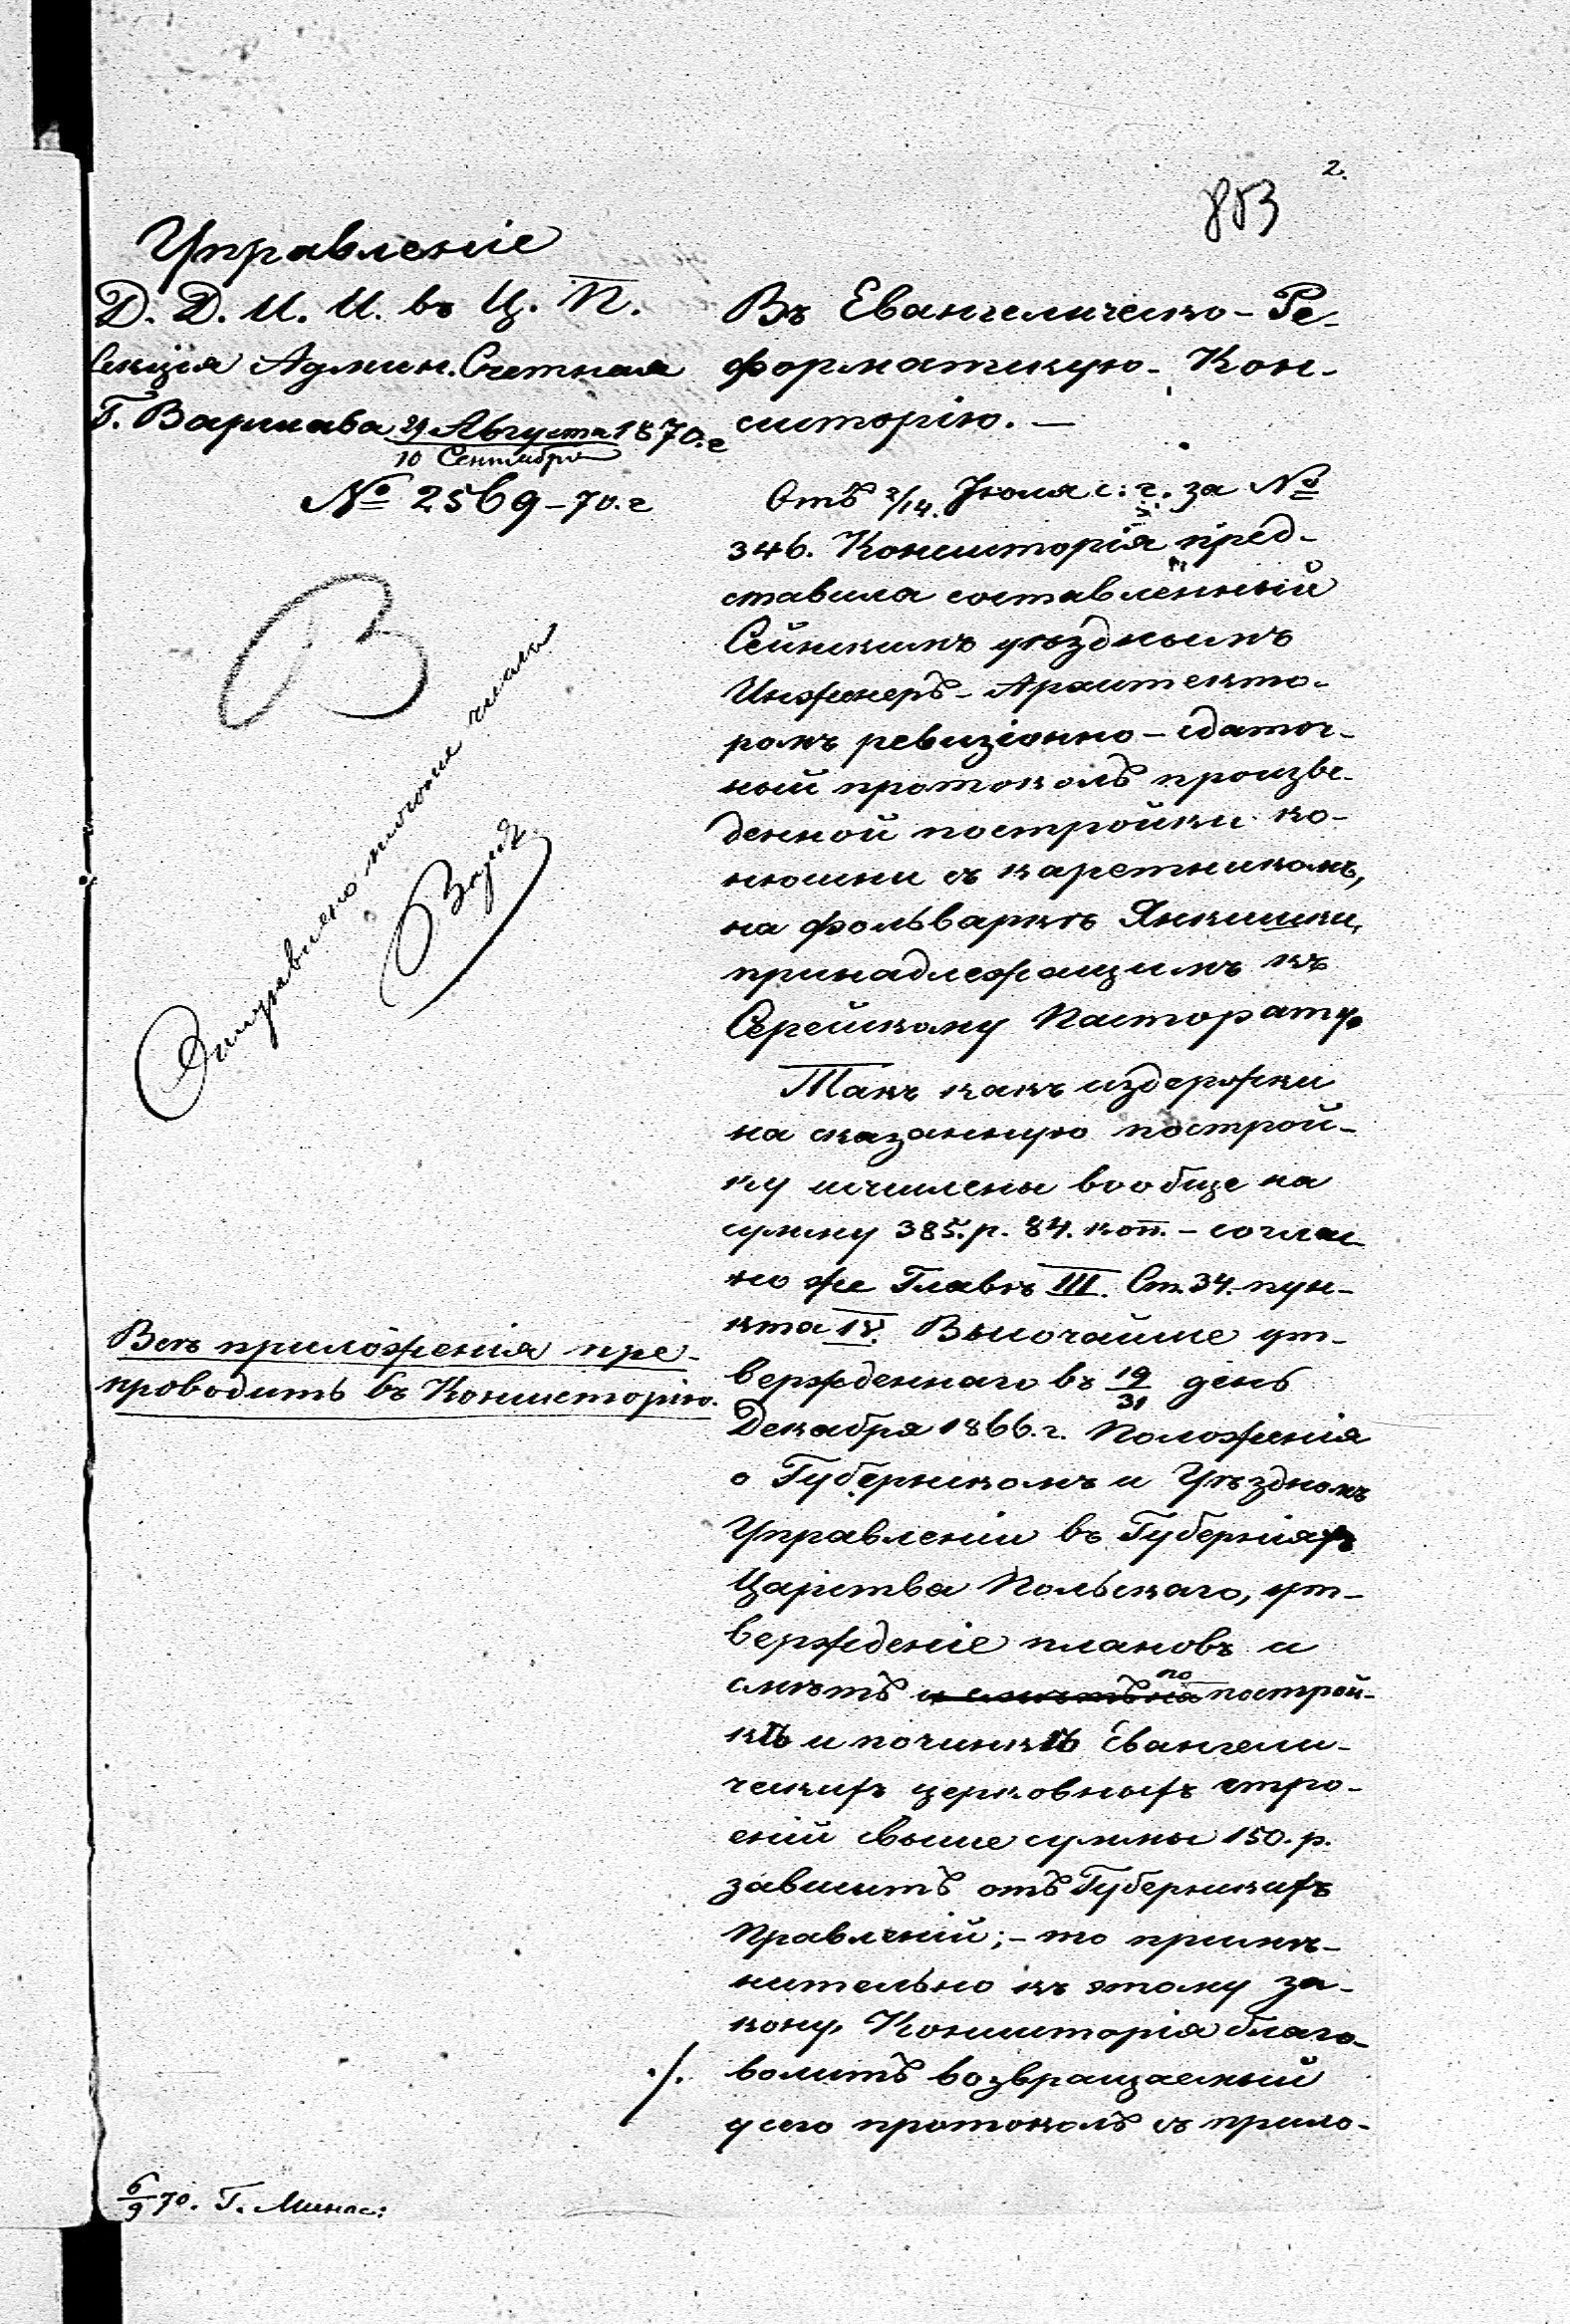 2.
853
Управленіе
Д. Д. И. И. въ Ц. П.
Секція Админ. Счетная
Г. Варшава 29 Августа 1870. г
10 Сентября
№ 2569-70. г
В
Отправлено того же числа
Въ Евангелическо-Ре-
форматскую Кон-
систорію. —
Отъ 2/14. Іюля с: г. за №
346. Консисторія пред-
ставила составленный
Сейнскимъ уѣзднымъ
Инженеръ-Архитекто-
ромъ ревизіонно-сдаточ-
ный протоколъ произве-
денной постройки ко-
нюшни съ каретникомъ,
на фольваркѣ Янкишки,
принадлежащимъ къ
Серейскому Пасторату.
Такъ какъ издержки
на сказанную построй-
ку исчислены вообще на
сумму 385. р. 84. коп. - соглас-
но же Главѣ III. Ст. 34. пун-
кта IV. Высочайше ут-
вержденнаго въ 19/31 день
Декабря 1866. г. Положенія
о Губернскомъ и Уѣздномъ
Управленіи въ Губерніяхъ
Царства Польскаго, ут-
вержденіе плановъ и
смѣтъ и смѣтъ на по построй-
кѣ и починкѣ Евангели-
ческихъ церковныхъ стро-
еній свыше суммы 150. р.
зависитъ отъ Губернскихъ
Правленій; - то примѣ-
нительно къ этому за-
кону, Консисторія благо-
волитъ возвращаемый
у сего протоколъ съ прило-
Всѣ приложенія пре-
проводить въ Консисторію.
./.
6/9 70. Г.